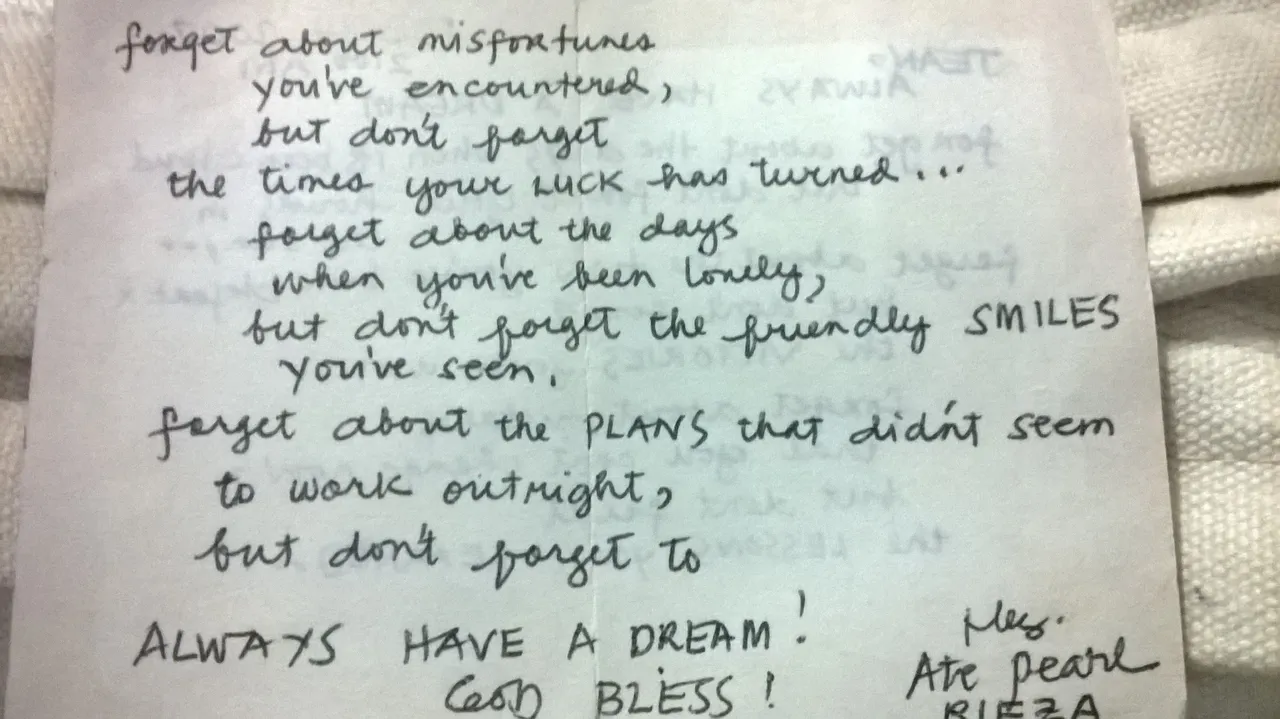 forget about misfortunes
you've encountered,
but don't forget
the times your LUCK has turned...
forget about the days
when you've been lonely,
but don't forget the friendly SMILES
you've seen.
forget about the PLANS that didn't seem
to work outright,
but don't forget to
ALWAYS HAVE A DREAM!
GOD BLESS!
Ate Pearl